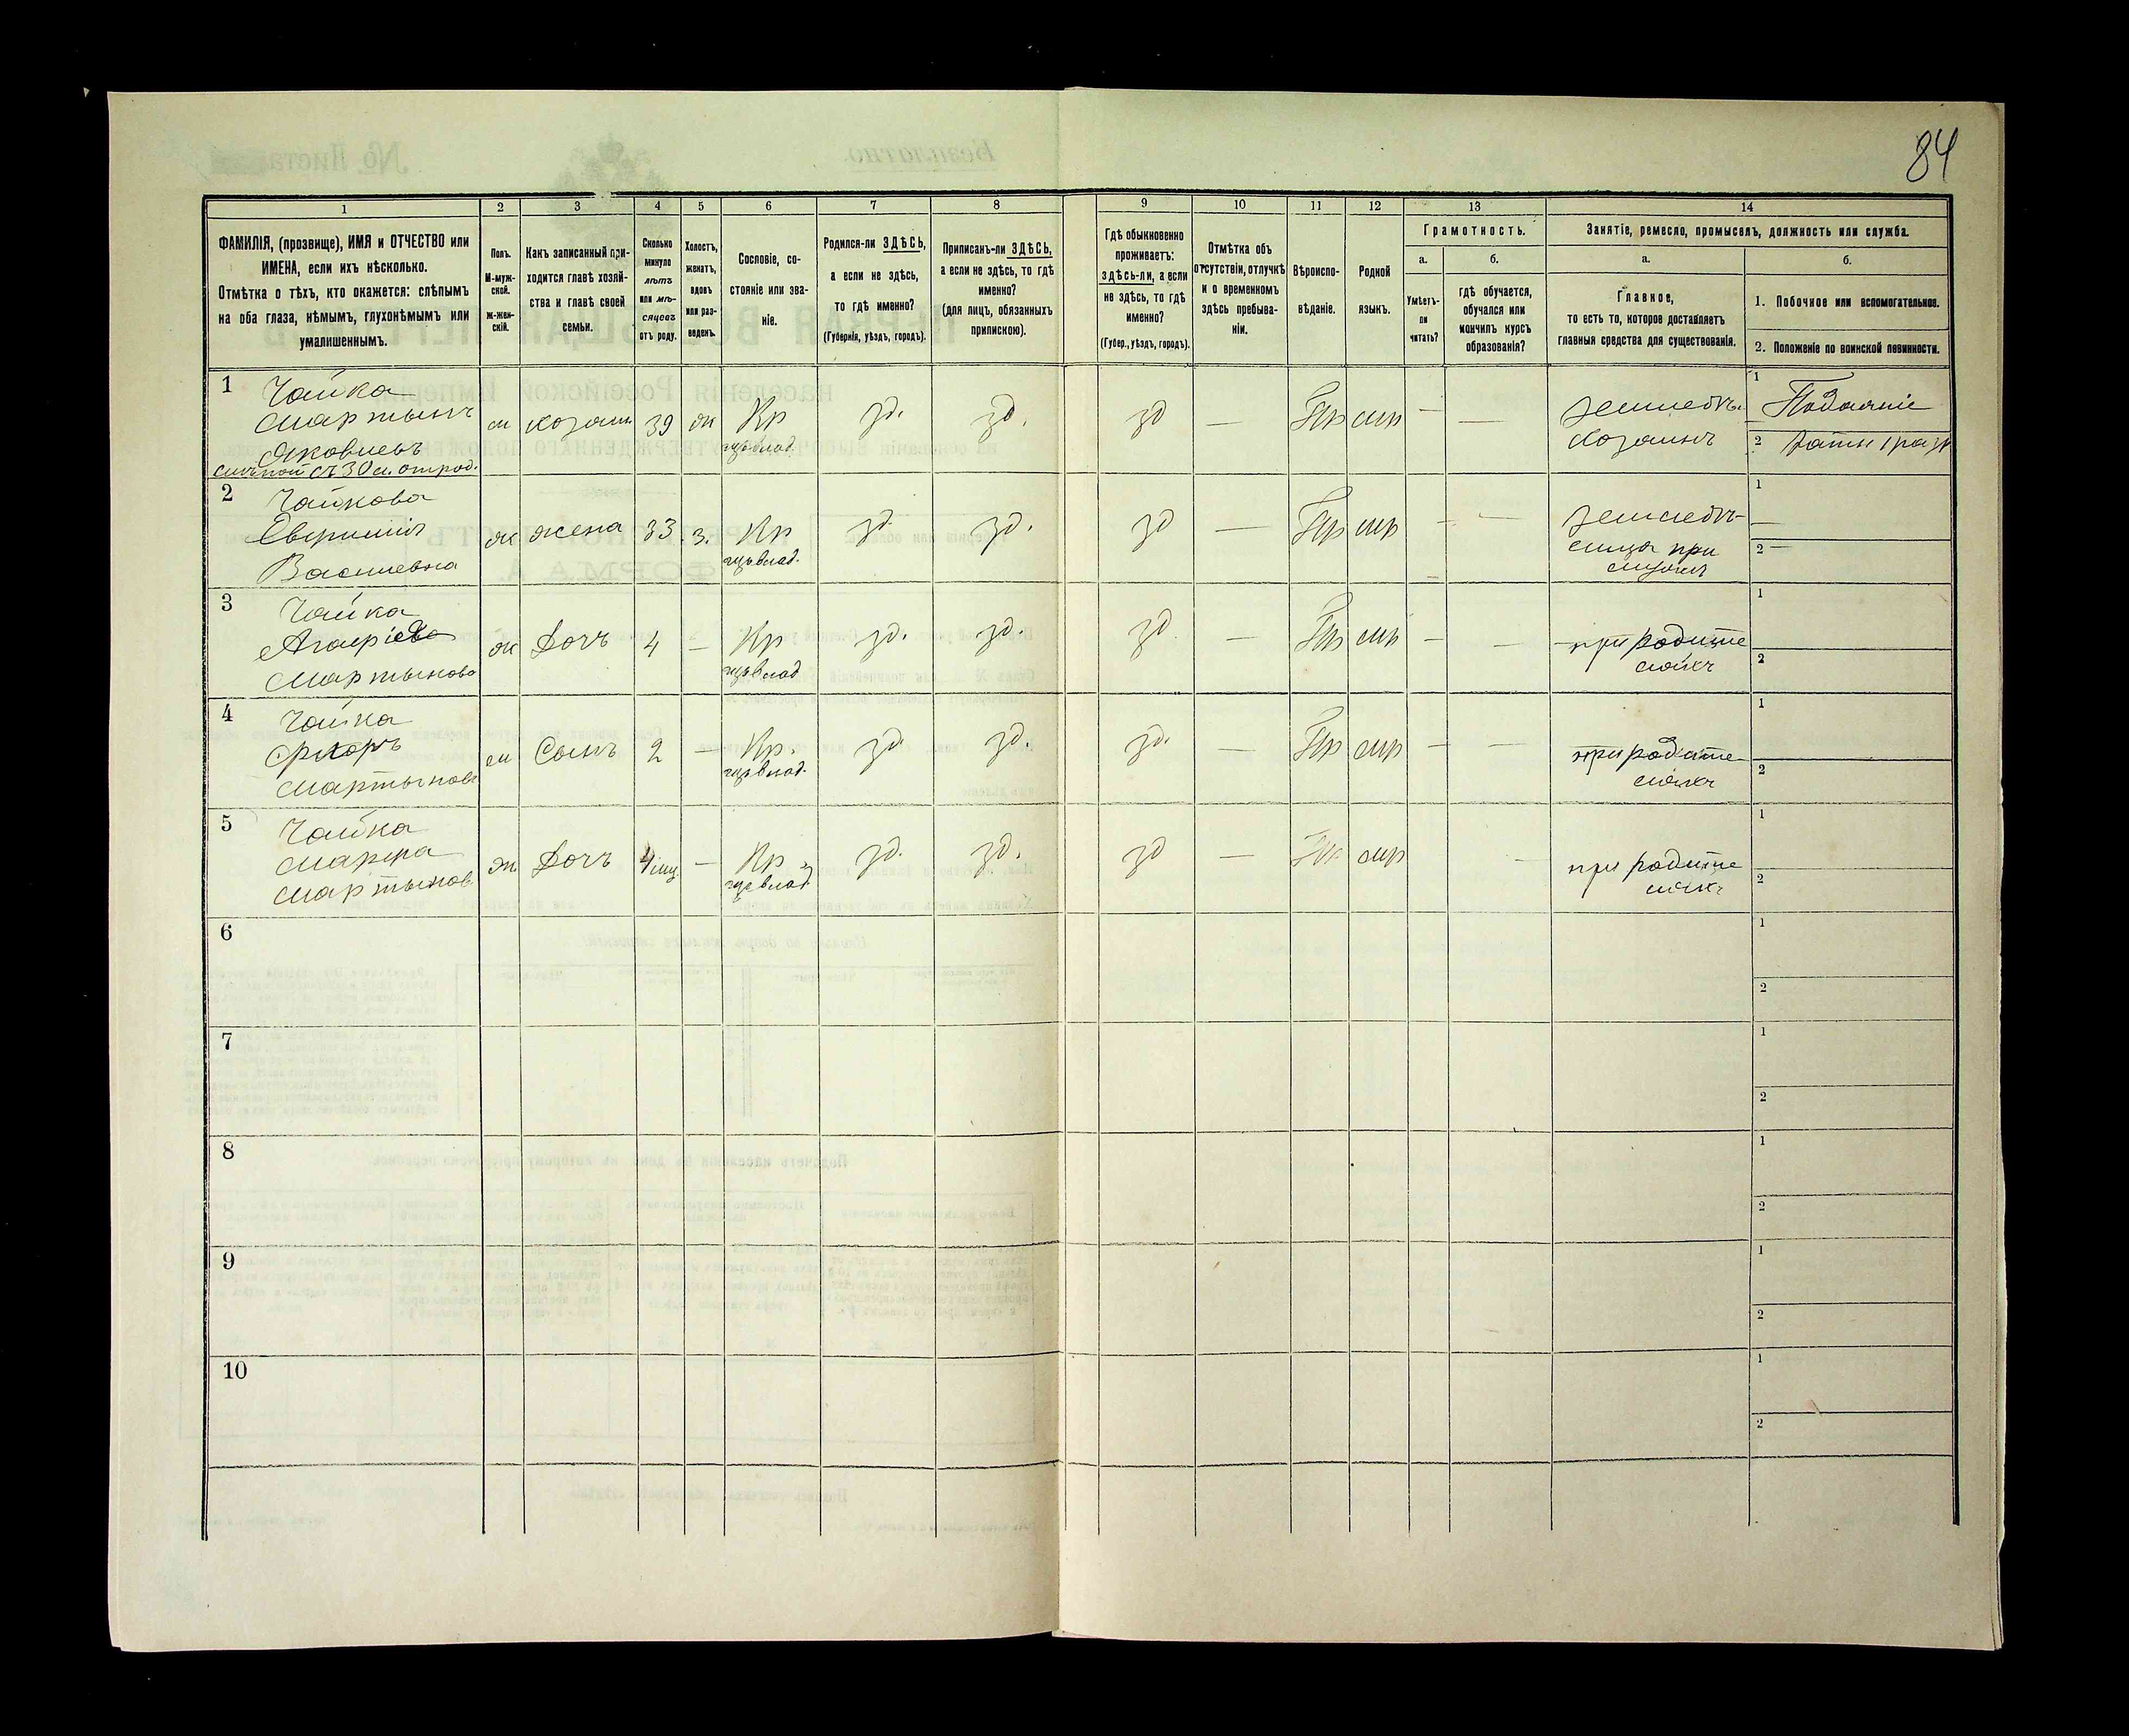 84
1 2 3 4 5 6 7 8 9 10 11 12 13 14
ФАМИЛІЯ, (прозвище), ИМЯ и ОТЧЕСТВО или
ИМЕНА, если ихъ нѣсколько.
Отмѣтка о тѣхъ, кто окажется: слѣпымъ
на оба глаза, нѣмымъ, глухонѣмымъ или
умалишеннымъ.
Полъ.
М-муж-
ской.
ж-жен-
скій.
Какъ записанный при-
ходится главѣ хозяй-
ства и главѣ своей
семьи.
Сколько
минуло
лѣтъ
или мѣ-
сяцевъ
отъ роду.
Холостъ,
женатъ,
вдовъ
или раз-
веденъ.
Сословіе, со-
стояніе или зва-
ніе.
Родился-ли ЗДѢСЬ,
а если не здѣсь,
то гдѣ именно?
(Губернія, уѣздъ, городъ).
Приписанъ-ли ЗДѢСЬ,
а если не здѣсь, то гдѣ
именно?
(для лицъ, обязанныхъ
припискою).
Гдѣ обыкновенно
проживаетъ:
здѣсь-ли, а если
не здѣсь, то гдѣ
именно?
(Губер., уѣздъ, городъ).
Отмѣтка объ
отсутствіи, отлучкѣ
и о временномъ
здѣсь пребыва-
ніи.
Вѣроиспо-
вѣданіе.
Родной
языкъ.
Грамотность.
а.
Умѣетъ-
ли
читать?
б.
гдѣ обучается,
обучался или
кончилъ курсъ
образованія?
Занятіе, ремесло, промыселъ, должность или служба.
а.
Главное,
то есть то, которое доставляетъ
главныя средства для существованія.
б.
1. Побочное или вспомогательное.
2. Положеніе по воинской повинности.
1 Чайка
Мартынъ
Яковлевъ
слѣпой съ 30 л. отрод.
м хозяин 39 ж Кр зд. зд. зд — Пр мр — —
хозяинъ
1 Подаяніе
2
2 Чайкова
Василевна
ж жена 33 з. Кр зд. зд. зд — Пр мр — —
при
1 —
2 —
3 Чайка
Мартынова
ж Дочь 4 — Кр зд. зд. зд — Пр мр — —
при родите
лѣхъ
1
2
4 Чайка
Мартынов
м Сынъ 2 — Кр. зд. зд. зд. — Пр мр — —
при родите
лѣхъ
1
2
5 Чайка
Марфа
Мартынов
ж Дочь 4 мц — Кр зд. зд. зд — Пр мр —
при родите
лѣхъ
1
2
6 1
2
7 1
2
8 1
2
9 1
2
10 1
2